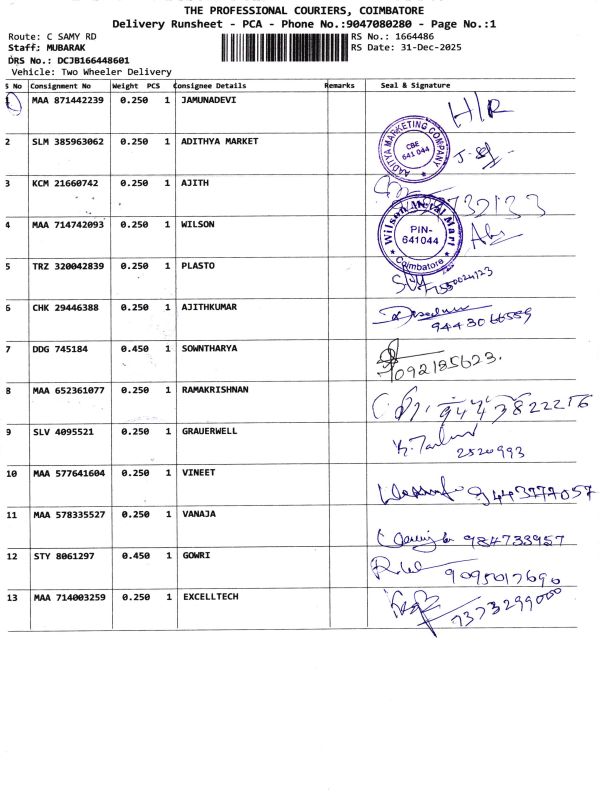 THE PROFESSIONAL COURIERS, COIMBATORE
Delivery Runsheet - PCA - Phone No.:9047080280 - Page No.:1
Route: C SAMY RD RS No.: 1664486
Staff: MUBARAK RS Date: 31-Dec-2025
DRS No.: DCJB166448601
Vehicle: Two Wheeler Delivery
S No Consignment No Weight PCS Consignee Details Remarks Seal & Signature
1 MAA 871442239 0.250 1 JAMUNADEVI H/R
2 SLM 385963062 0.250 1 ADITHYA MARKET AADITYA MARKETING COMPANY CBE 641 044
3 KCM 21660742 0.250 1 AJITH
4 MAA 714742093 0.250 1 WILSON Wilson Metal Mart PIN-641044 Coimbatore
5 TRZ 320042839 0.250 1 PLASTO
6 CHK 29446388 0.250 1 AJITHKUMAR 9443066559
7 DDG 745184 0.450 1 SOWNTHARYA 092185623.
8 MAA 652361077 0.250 1 RAMAKRISHNAN 9443822216
9 SLV 4095521 0.250 1 GRAUERWELL 2520993
10 MAA 577641604 0.250 1 VINEET 9443777057
11 MAA 578335527 0.250 1 VANAJA 984733957
12 STY 8061297 0.450 1 GOWRI 9095017690
13 MAA 714003259 0.250 1 EXCELLTECH 7373299000